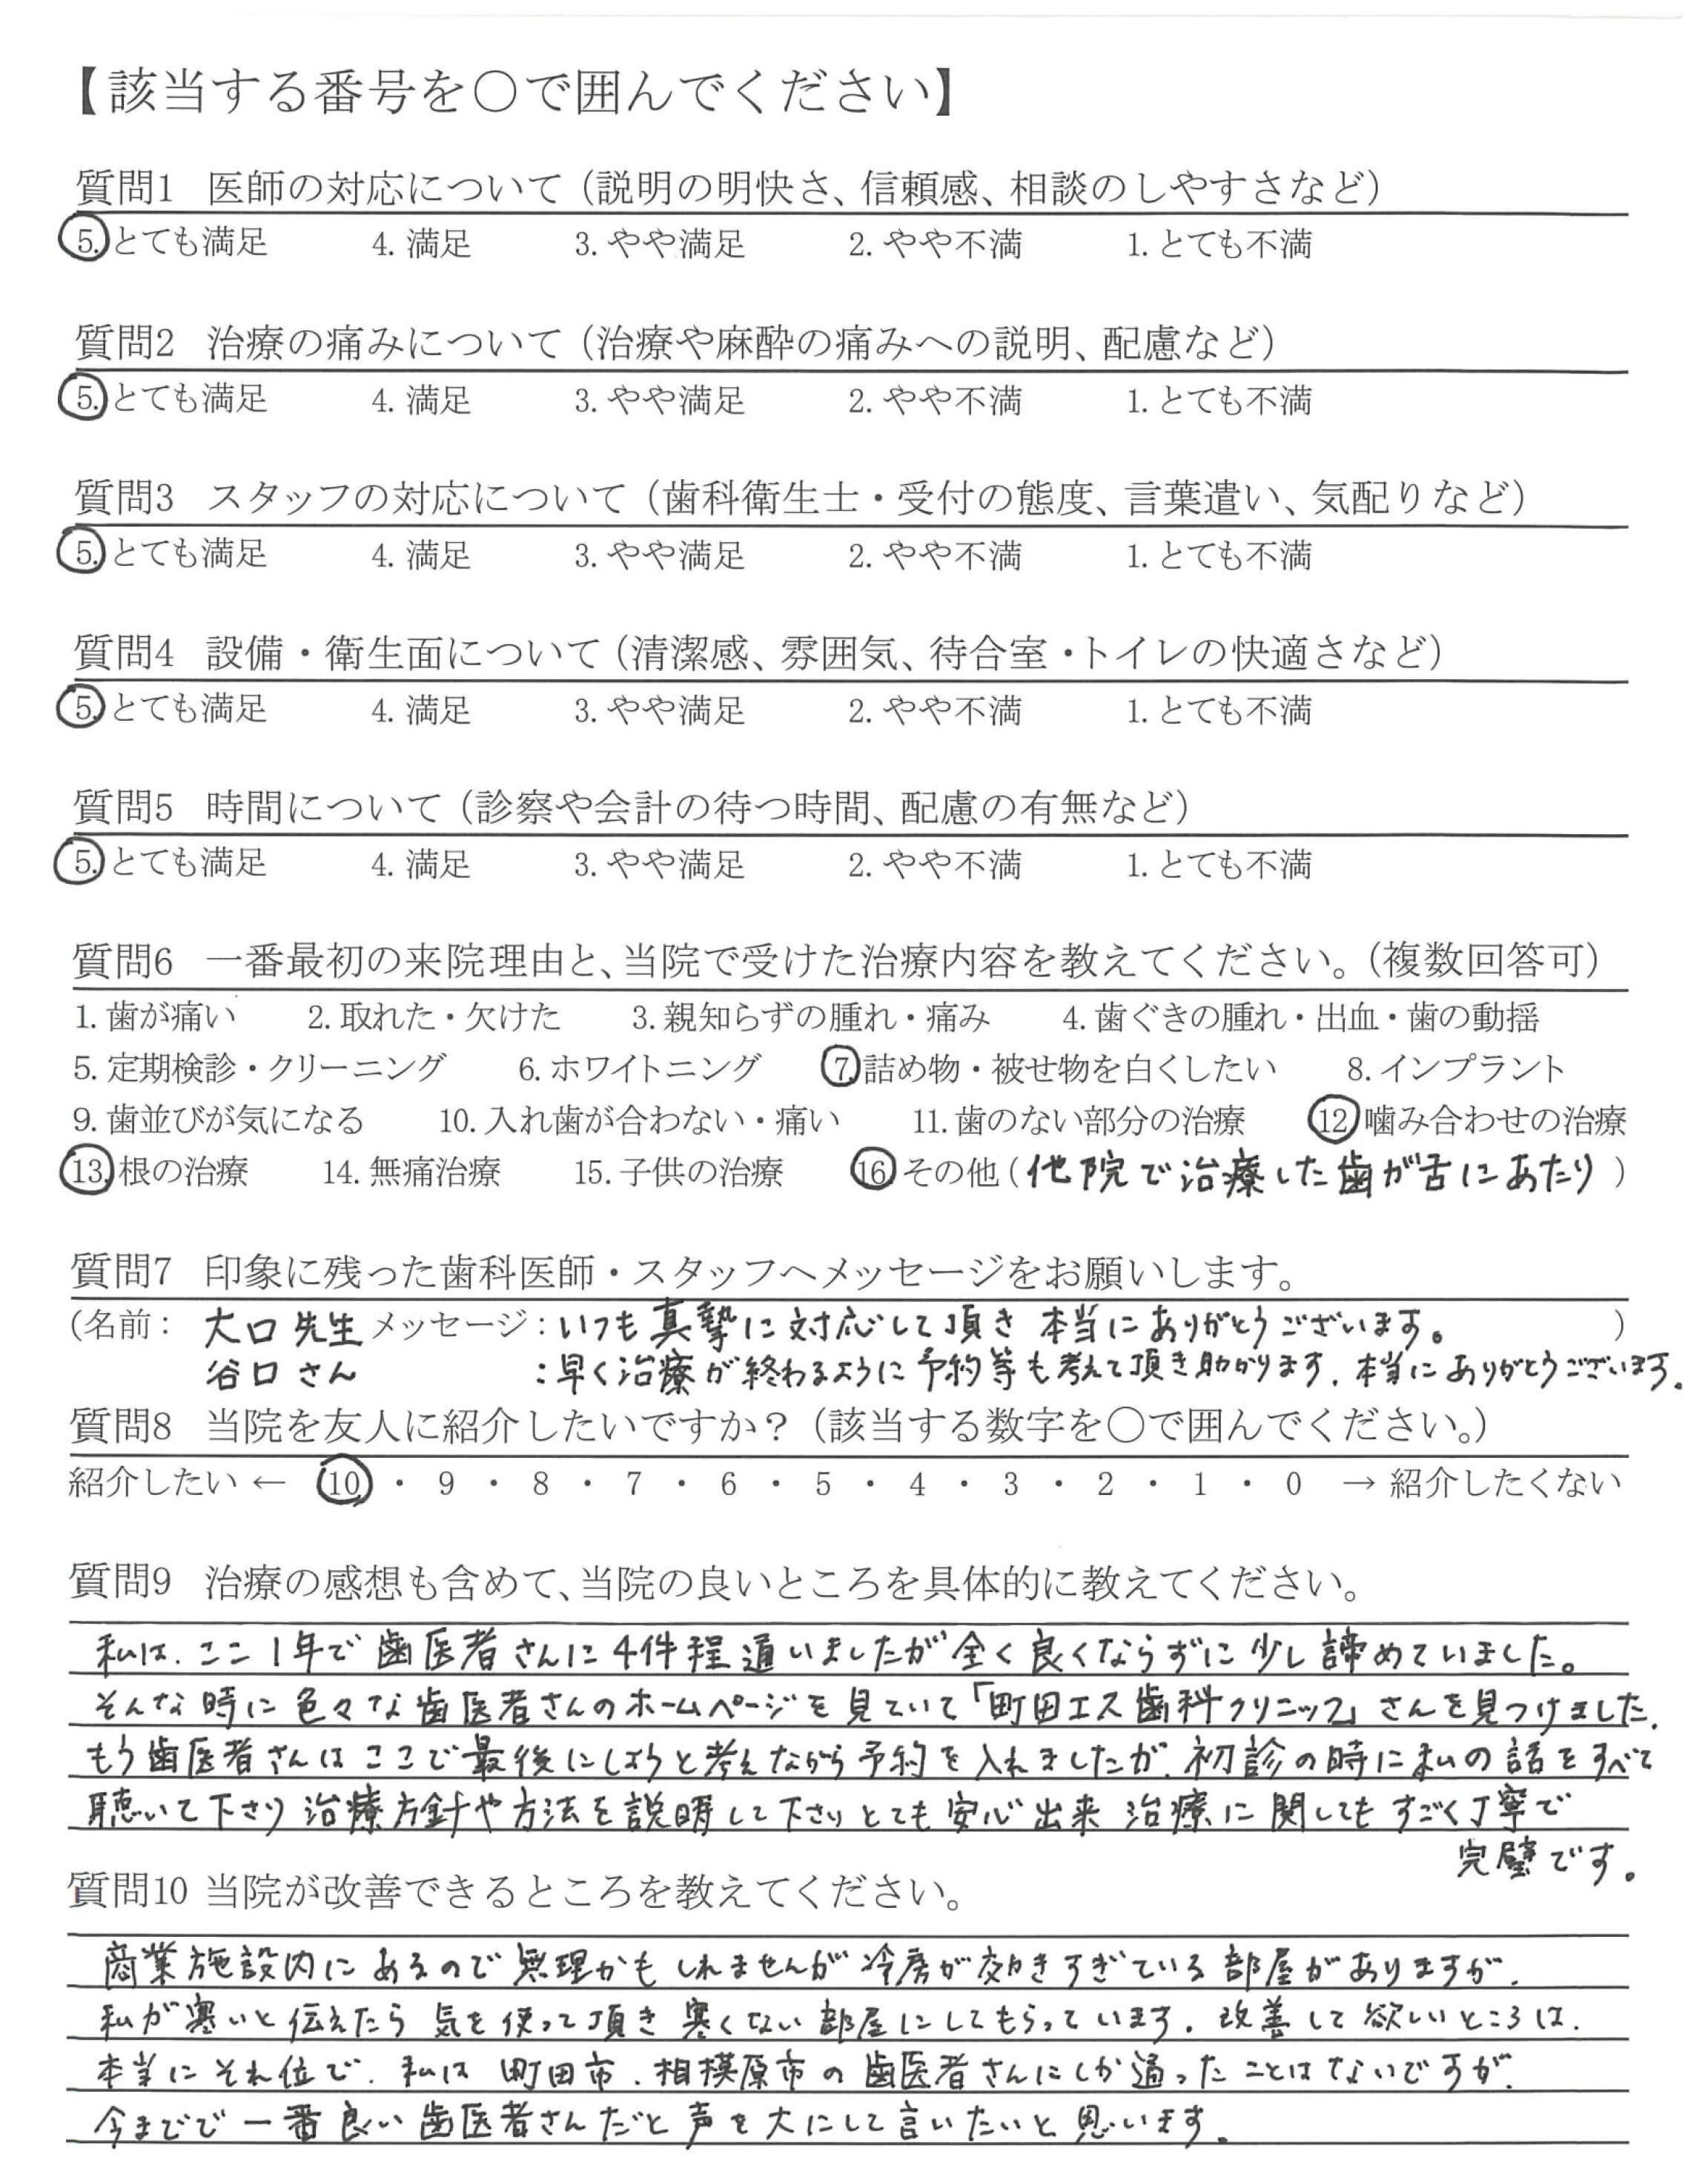 【該当する番号を〇で囲んでください】
質問1 医師の対応について（説明の明快さ、信頼感、相談のしやすさなど）
5.とても満足 4. 満足 3.やや満足 2.やや不満 1.とても不満
質問2 治療の痛みについて（治療や麻酔の痛みへの説明、配慮など）
5.とても満足 4. 満足 3.やや満足 2.やや不満 1.とても不満
質問3 スタッフの対応について（歯科衛生士・受付の態度、言葉遣い、気配りなど）
5.とても満足 4. 満足 3.やや満足 2.やや不満 1.とても不満
質問4 設備・衛生面について（清潔感、雰囲気、待合室・トイレの快適さなど）
5.とても満足 4. 満足 3.やや満足 2.やや不満 1.とても不満
質問5 時間について（診察や会計の待つ時間、配慮の有無など）
5.とても満足 4. 満足 3.やや満足 2.やや不満 1.とても不満
質問6 一番最初の来院理由と、当院で受けた治療内容を教えてください。（複数回答可）
1.歯が痛い 2.取れた・欠けた 3.親知らずの腫れ・痛み 4.歯ぐきの腫れ・出血・歯の動揺
5.定期検診・クリーニング 6.ホワイトニング 7.詰め物・被せ物を白くしたい 8.インプラント
9.歯並びが気になる 10.入れ歯が合わない・痛い 11.歯のない部分の治療 12.噛み合わせの治療
13.根の治療 14.無痛治療 15.子供の治療 16.その他（他院で治療した歯が舌にあたり）
質問7 印象に残った歯科医師・スタッフへメッセージをお願いします。
（名前： 大口先生 メッセージ：いつも真摯に対応して頂き 本当にありがとうございます。）
谷口さん ：早く治療が終わるように予約等も考えて頂き助かります．本当にありがとうございます．
質問8 当院を友人に紹介したいですか？（該当する数字を〇で囲んでください。）
紹介したい ← 10 ・ 9 ・ 8 ・ 7 ・ 6 ・ 5 ・ 4 ・ 3 ・ 2 ・ 1 ・ 0 → 紹介したくない
質問9 治療の感想も含めて、当院の良いところを具体的に教えてください。
私は、ここ1年で歯医者さんに4件程通いましたが全く良くならずに少し諦めていました。
そんな時に色々な歯医者さんのホームページを見ていて「町田エス歯科クリニック」さんを見つけました．
もう歯医者さんはここで最後にしようと考えながら予約を入れましたが、初診の時に私の話をすべて
聴いて下さり治療方針や方法を説明して下さりとても安心出来 治療に関してもすごく丁寧で
完璧です。
質問10 当院が改善できるところを教えてください。
商業施設内にあるので無理かもしれませんが冷房が効きすぎている部屋がありますが、
私が寒いと伝えたら気を使って頂き寒くない部屋にしてもらっています．改善して欲しいところは、
本当にそれ位で、私は町田市、相模原市の歯医者さんにしか通ったことはないですが、
今までで一番良い歯医者さんだと声を大にして言いたいと思います．